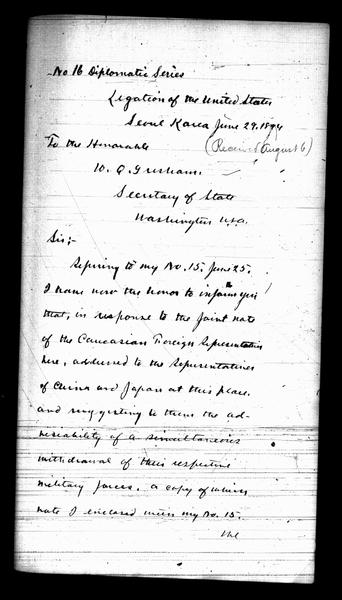 No 16 Diplomatic Series
Legation of the United States
Seoul Korea June 29. 1894
To the Honorable
(Received August 6)
W. Q. Gresham.
Secretary of State
Washington U.S.A.
Sir;-
Referring to my No. 15. June 25.
I have now the honor to inform you
that, in response to the joint note
of the Caucasian Foreign Representatives
here, addressed to the Representatives
of China and Japan at this place.
and suggesting to them the ad-
viseability of a simultaneous
withdrawal of their respective
military forces. a copy of which
note I enclosed with my No. 15.
the